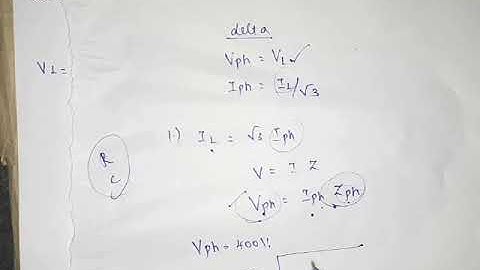 delta
Vph = VL ✓
Iph = IL/√3
VL =
1.) IL = √3 Iph
R
C
V = I Z
Vph = Iph Zph
Vph = 400V.